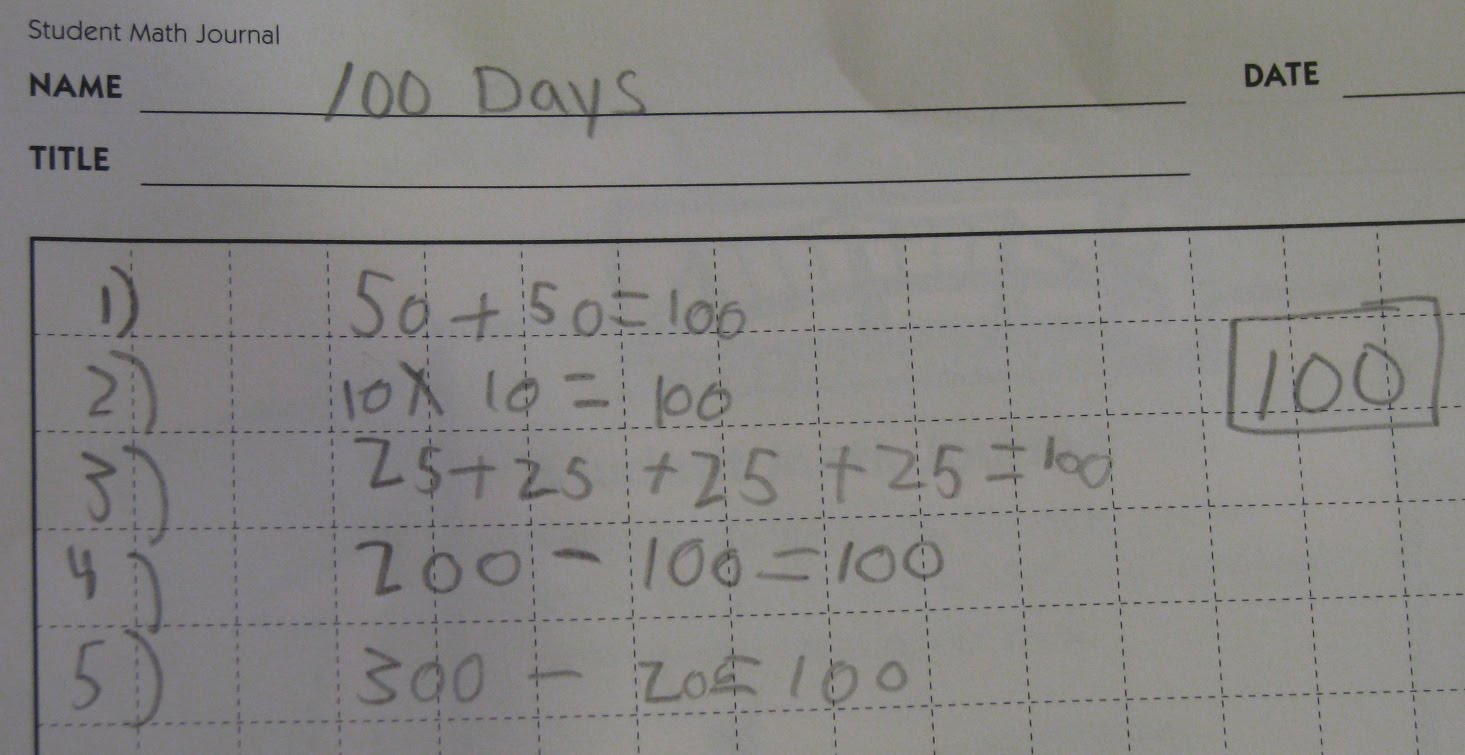 Student Math Journal
NAME 100 Days DATE
TITLE
1) 50 + 50 = 100
2) 10 X 10 = 100
100
3) 25 + 25 + 25 + 25 = 100
4) 200 - 100 = 100
5) 300 - 200 = 100